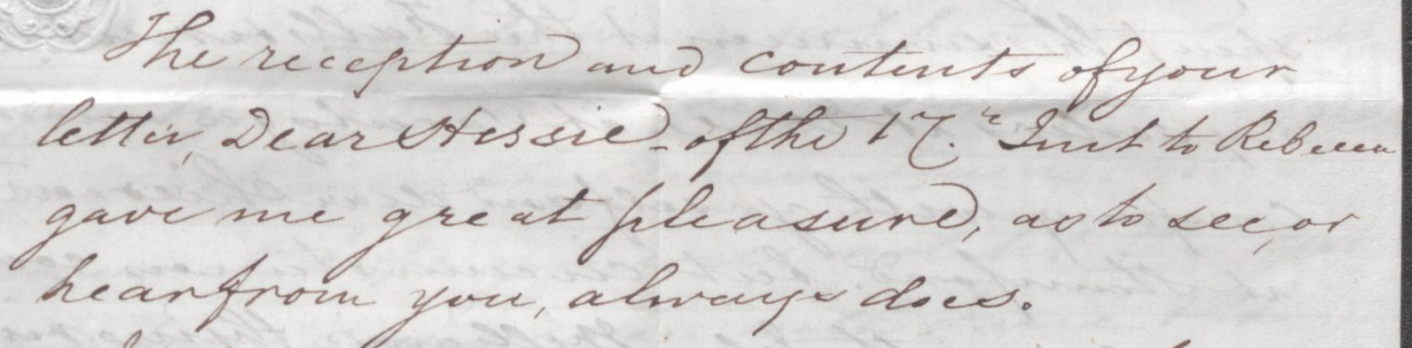 The reception and contents of your
letter, Dear Hessie - of the 17.th Inst to Rebecca
gave me great pleasure, as to see, or
hear from you, always does.